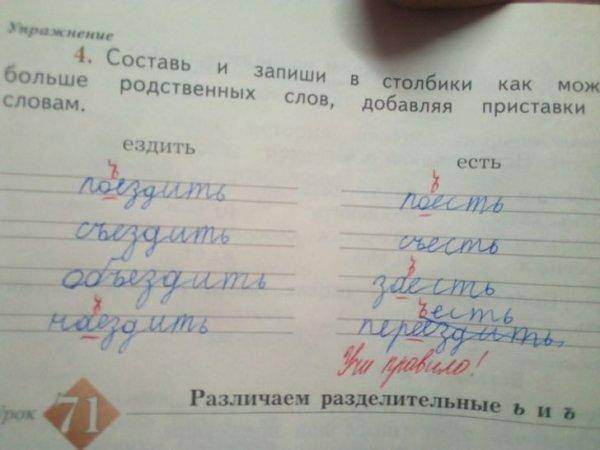 Упражнение
4. Составь и запиши в столбики как мож
больше родственных слов, добавляя приставки
словам.
ездить
есть
ъ
поездить
ъ
поесть
съездить
съесть
объездить
ъ
заесть
ъ
наездить
ъесть
переездить
Учи правило!
Урок 71 Различаем разделительные ь и ъ